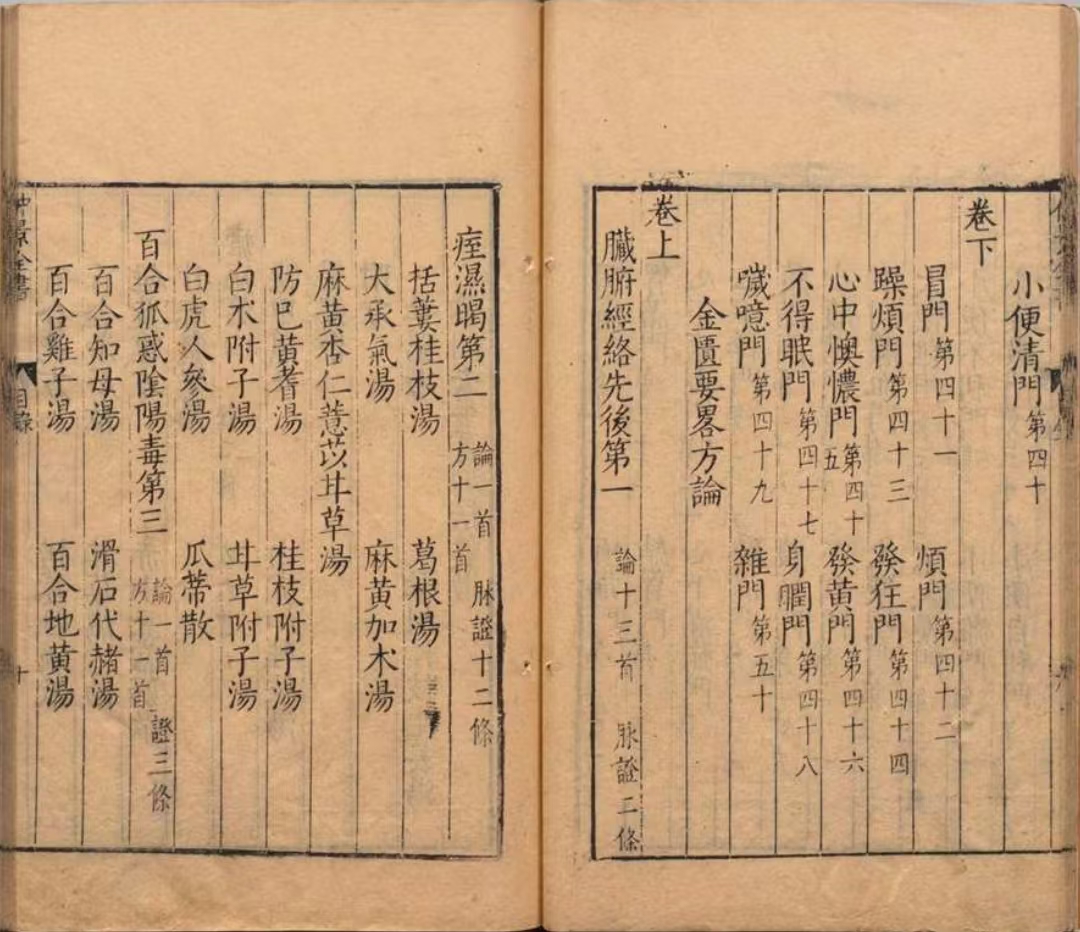 小便清門第四十
卷下
冒門第四十一 煩門第四十二
躁煩門第四十三 發狂門第四十四
心中懊憹門第四十五 發黃門第四十六
不得眠門第四十七 身瞤門第四十八
噦噫門第四十九 雜門第五十
金匱要畧方論
卷上
臟腑經絡先後第一 論十三首 脉證二條
痓濕暍第二 論一首 脉證十二條 方十一首
括蔞桂枝湯 葛根湯
大承氣湯 麻黃加术湯
麻黃杏仁薏苡甘草湯
防巳黃耆湯 桂枝附子湯
白术附子湯 甘草附子湯
白虎人參湯 瓜蒂散
百合狐惑陰陽毒第三 論一首 證三條 方十一首
百合知母湯 滑石代赭湯
百合雞子湯 百合地黃湯
仲景全書 目錄 十